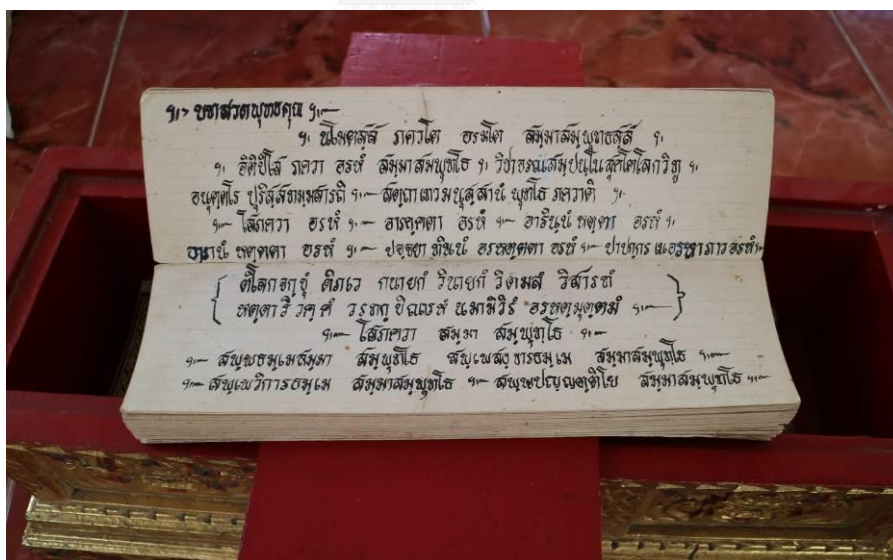 ฯ> บทสวดพุทธคุณ ฯ—
ฯ นโมตสฺสํ ภควโต อรหโต สัมฺมาสัมฺพุทธสฺสํ ฯ
ฯ อิติปิโส ภควา อรหํ สัมฺมาสัมพุทฺโธ ฯ วิชาจรณสัมฺปนฺโน สุคโตโลกวิทู ฯ
อนุตฺตโร ปุริสฺสทมฺมสารถิ ฯ— สตฺถาเทวมนุสฺสานํ พุทฺโธ ภควาติ ฯ
ฯ— โสภควา อรหํ ฯ— อารกฺตตา อรหํ ฯ— อารินฺนํ หตฺตา อรหํ ฯ
อรานํ หตฺตตา อรหํ ฯ— ปจฺจยาทินนํ อรหตฺตตา อรหํ ฯ— ปาปกฺกรเณอรหาภาว อรหํ ฯ—
ติโลกจกฺขุํ ติภเว กนายกํ วินายกํ วิตมลํ วิสารทํ
หตฺตาริวคฺคํ นมามิวิรํ อรหตฺมุตฺตมํ ฯ—
ฯ— โสภควา สัมฺมา สัมฺพุทฺโธ ฯ—
ฯ— สพฺพธมฺเมสัมฺมา สัมฺพุทฺโธ สพฺเพสงฺขารธมฺเม สัมฺมาสัมฺพุทฺโธ ฯ—
ฯ— สพฺเพวิการธมฺเม สัมฺมาสัมฺพุทฺโธ ฯ— สพฺพปญฺญตฺติโย สัมฺมาสัมฺพุทฺโธ ฯ—